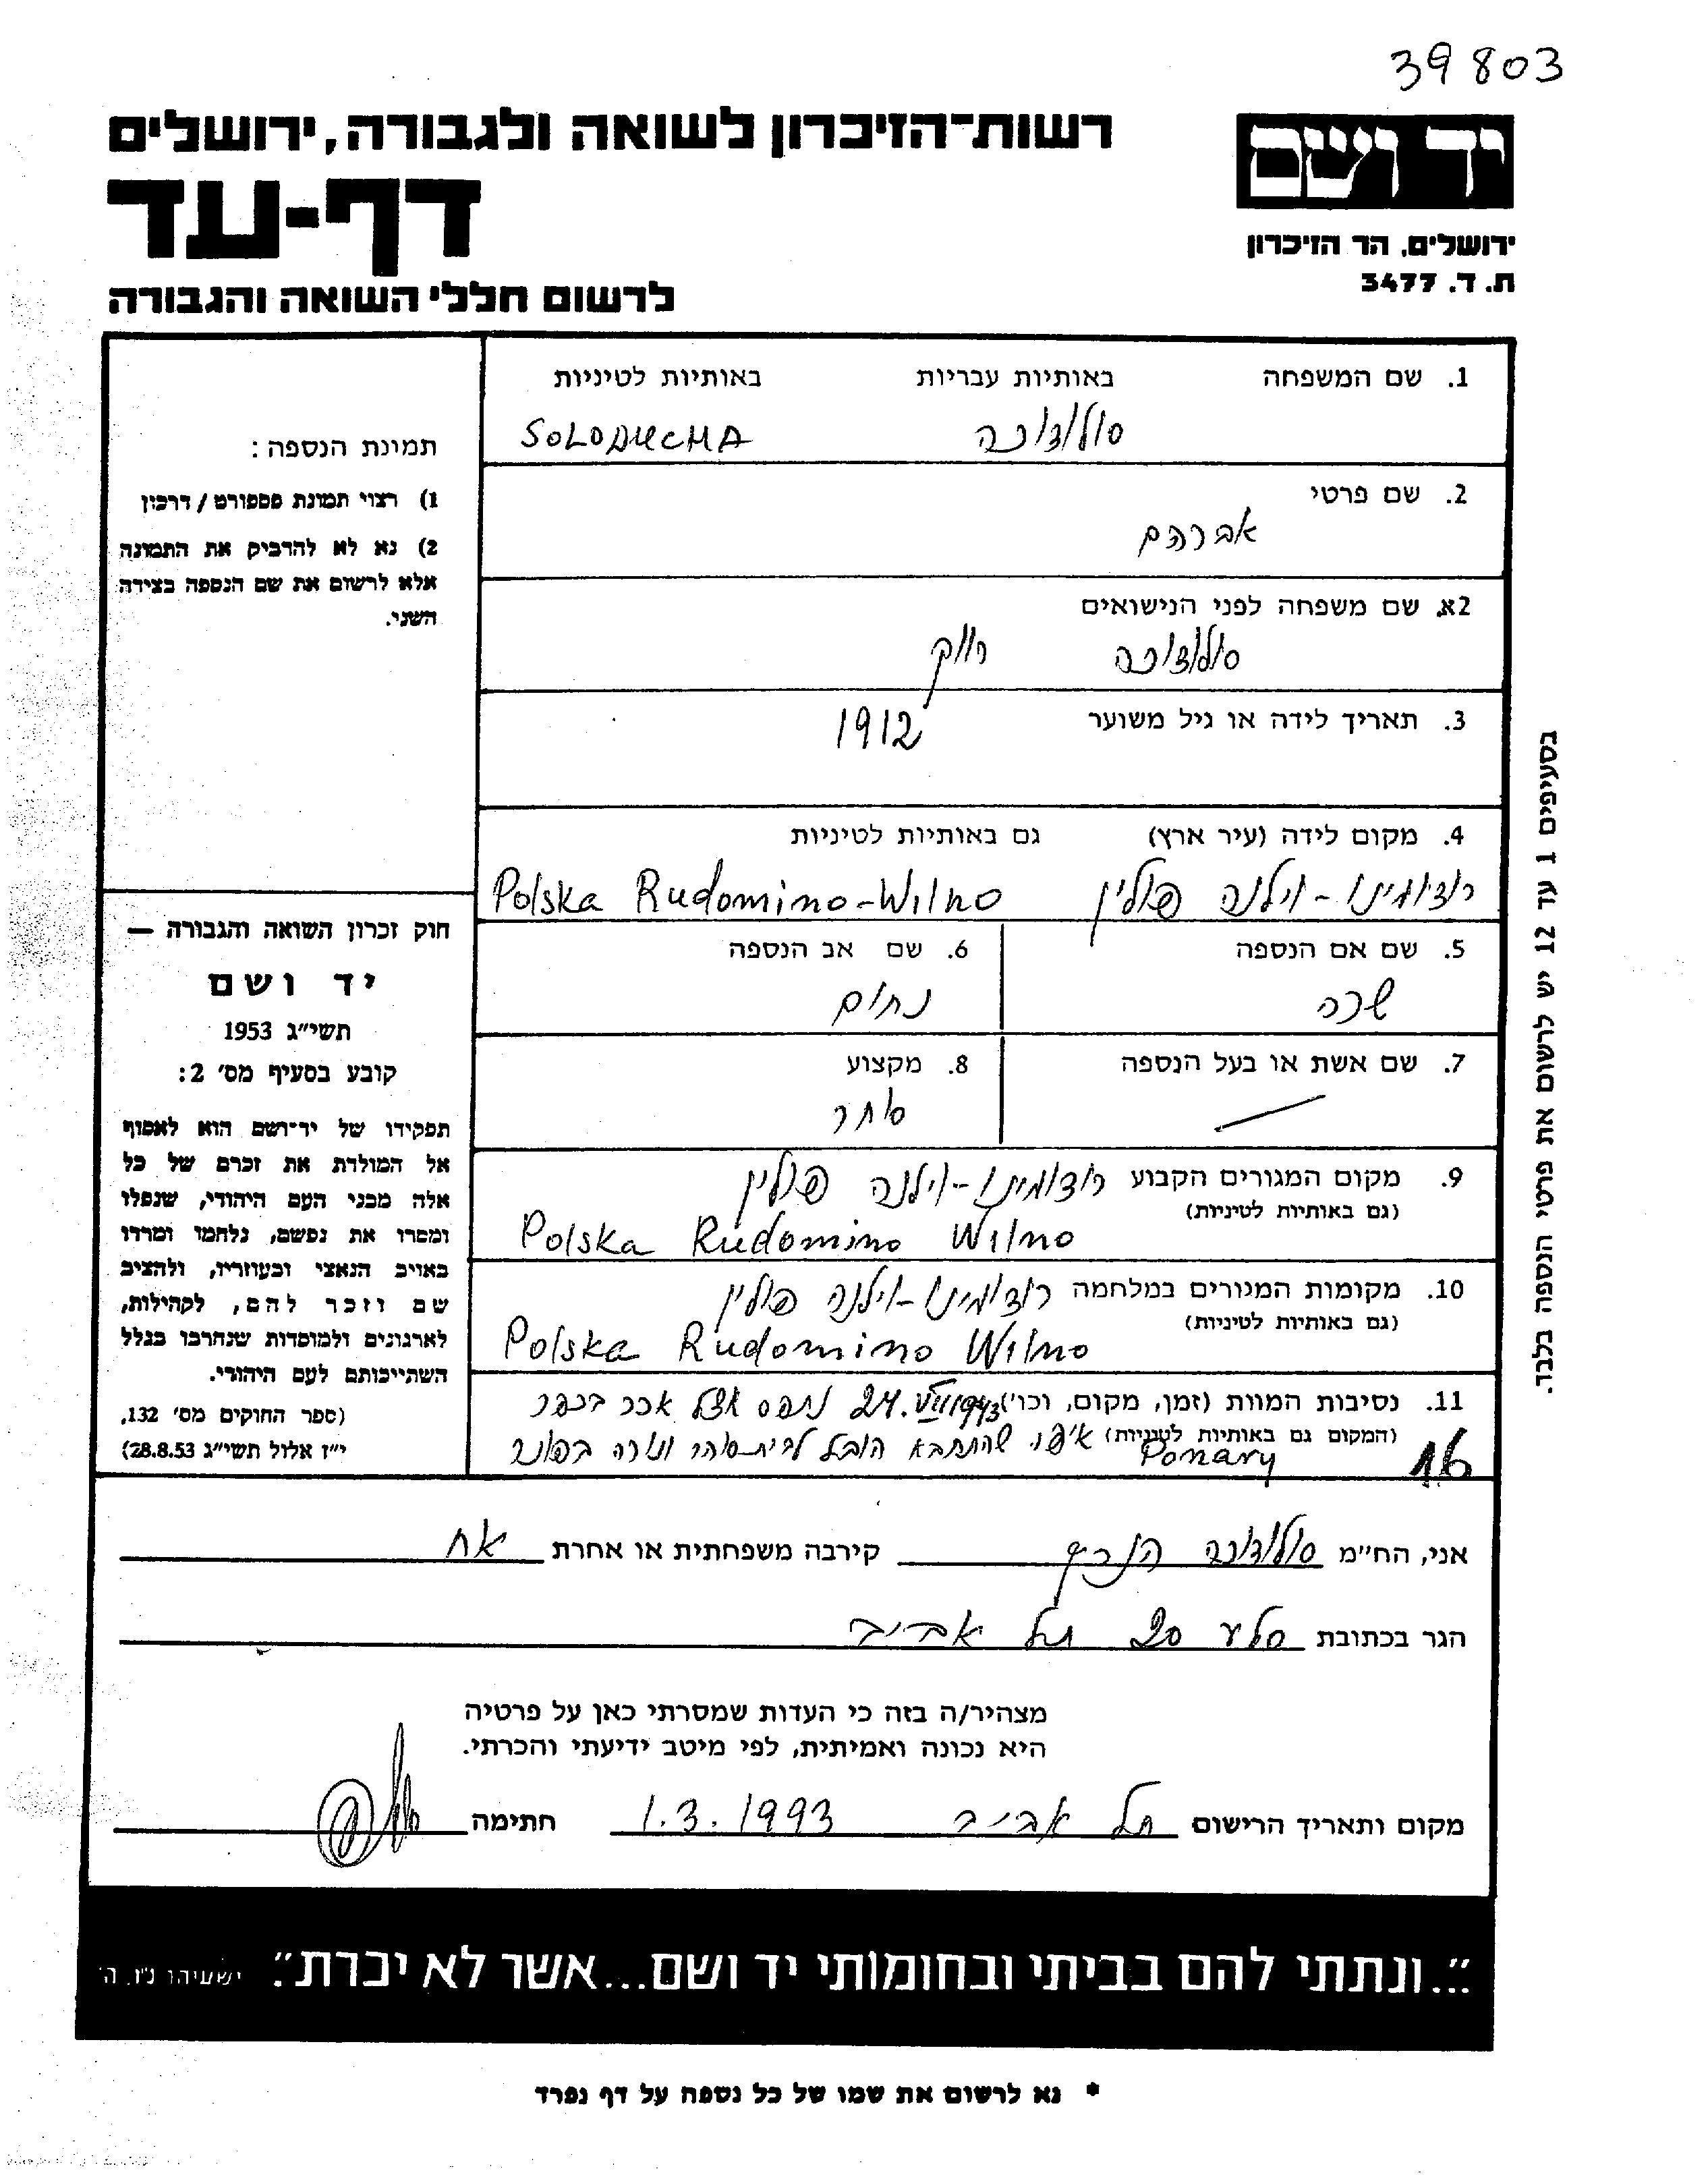 39803
רשות-הזיכרון לשואה ולגבורה, ירושלים
יד ושם
דף-עד
ירושלים, הר הזיכרון
ת. ד. 3477
לרשום חללי השואה והגבורה
1. שם המשפחה באותיות עבריות באותיות לטיניות
סולודוכה SOLODUCHA
2. שם פרטי
אברהם
2א. שם משפחה לפני הנישואים
סולודוכה רווק
3. תאריך לידה או גיל משוער
1912
4. מקום לידה (עיר ארץ) גם באותיות לטיניות
רודומינו - וילנה פולין Polska Rudomino-Wilno
5. שם אם הנספה 6. שם אב הנספה
שרה נחום
7. שם אשת או בעל הנספה 8. מקצוע
סוחר
9. מקום המגורים הקבוע רודומינו - וילנה פולין
(גם באותיות לטיניות)
Polska Rudomino Wilno
10. מקומות המגורים במלחמה רודומינו - וילנה פולין
(גם באותיות לטיניות)
Polska Rudomino Wilno
11. נסיבות המוות (זמן, מקום, וכו') 24.VII 1943 נתפס אצל אכר בכפר
(המקום גם באותיות לטיניות) שהתחבא הובל לבית סוהר ונורה בפונר
Ponary
16
תמונת הנספה:
1) רצוי תמונת פספורט / דרכון
2) נא לא להדביק את התמונה
אלא לרשום את שם הנספה בצידה
השני.
חוק זכרון השואה והגבורה —
יד ושם
תשי"ג 1953
קובע בסעיף מס' 2:
תפקידו של יד-ושם הוא לאסוף
אל המולדת את זכרם של כל
אלה מבני העם היהודי, שנפלו
ומסרו את נפשם, נלחמו ומרדו
באויב הנאצי ובעוזריו, ולהציב
שם וזכר להם, לקהילות,
לארגונים ולמוסדות שנחרבו בגלל
השתייכותם לעם היהודי.
(ספר החוקים מס' 132,
י"ז אלול תשי"ג 28.8.53)
בסעיפים 1 עד 12 יש לרשום את פרטי הנספה בלבד.
אני, הח"מ סולודוכה הנריק קירבה משפחתית או אחרת אח
הגר בכתובת סלע 20 תל אביב
מצהיר/ה בזה כי העדות שמסרתי כאן על פרטיה
היא נכונה ואמיתית, לפי מיטב ידיעתי והכרתי.
מקום ותאריך הרישום תל אביב 1.3.1993 חתימה
"...ונתתי להם בביתי ובחומותי יד ושם...אשר לא יכרת". ישעיהו נ"ו, ה'
* נא לרשום את שמו של כל נספה על דף נפרד